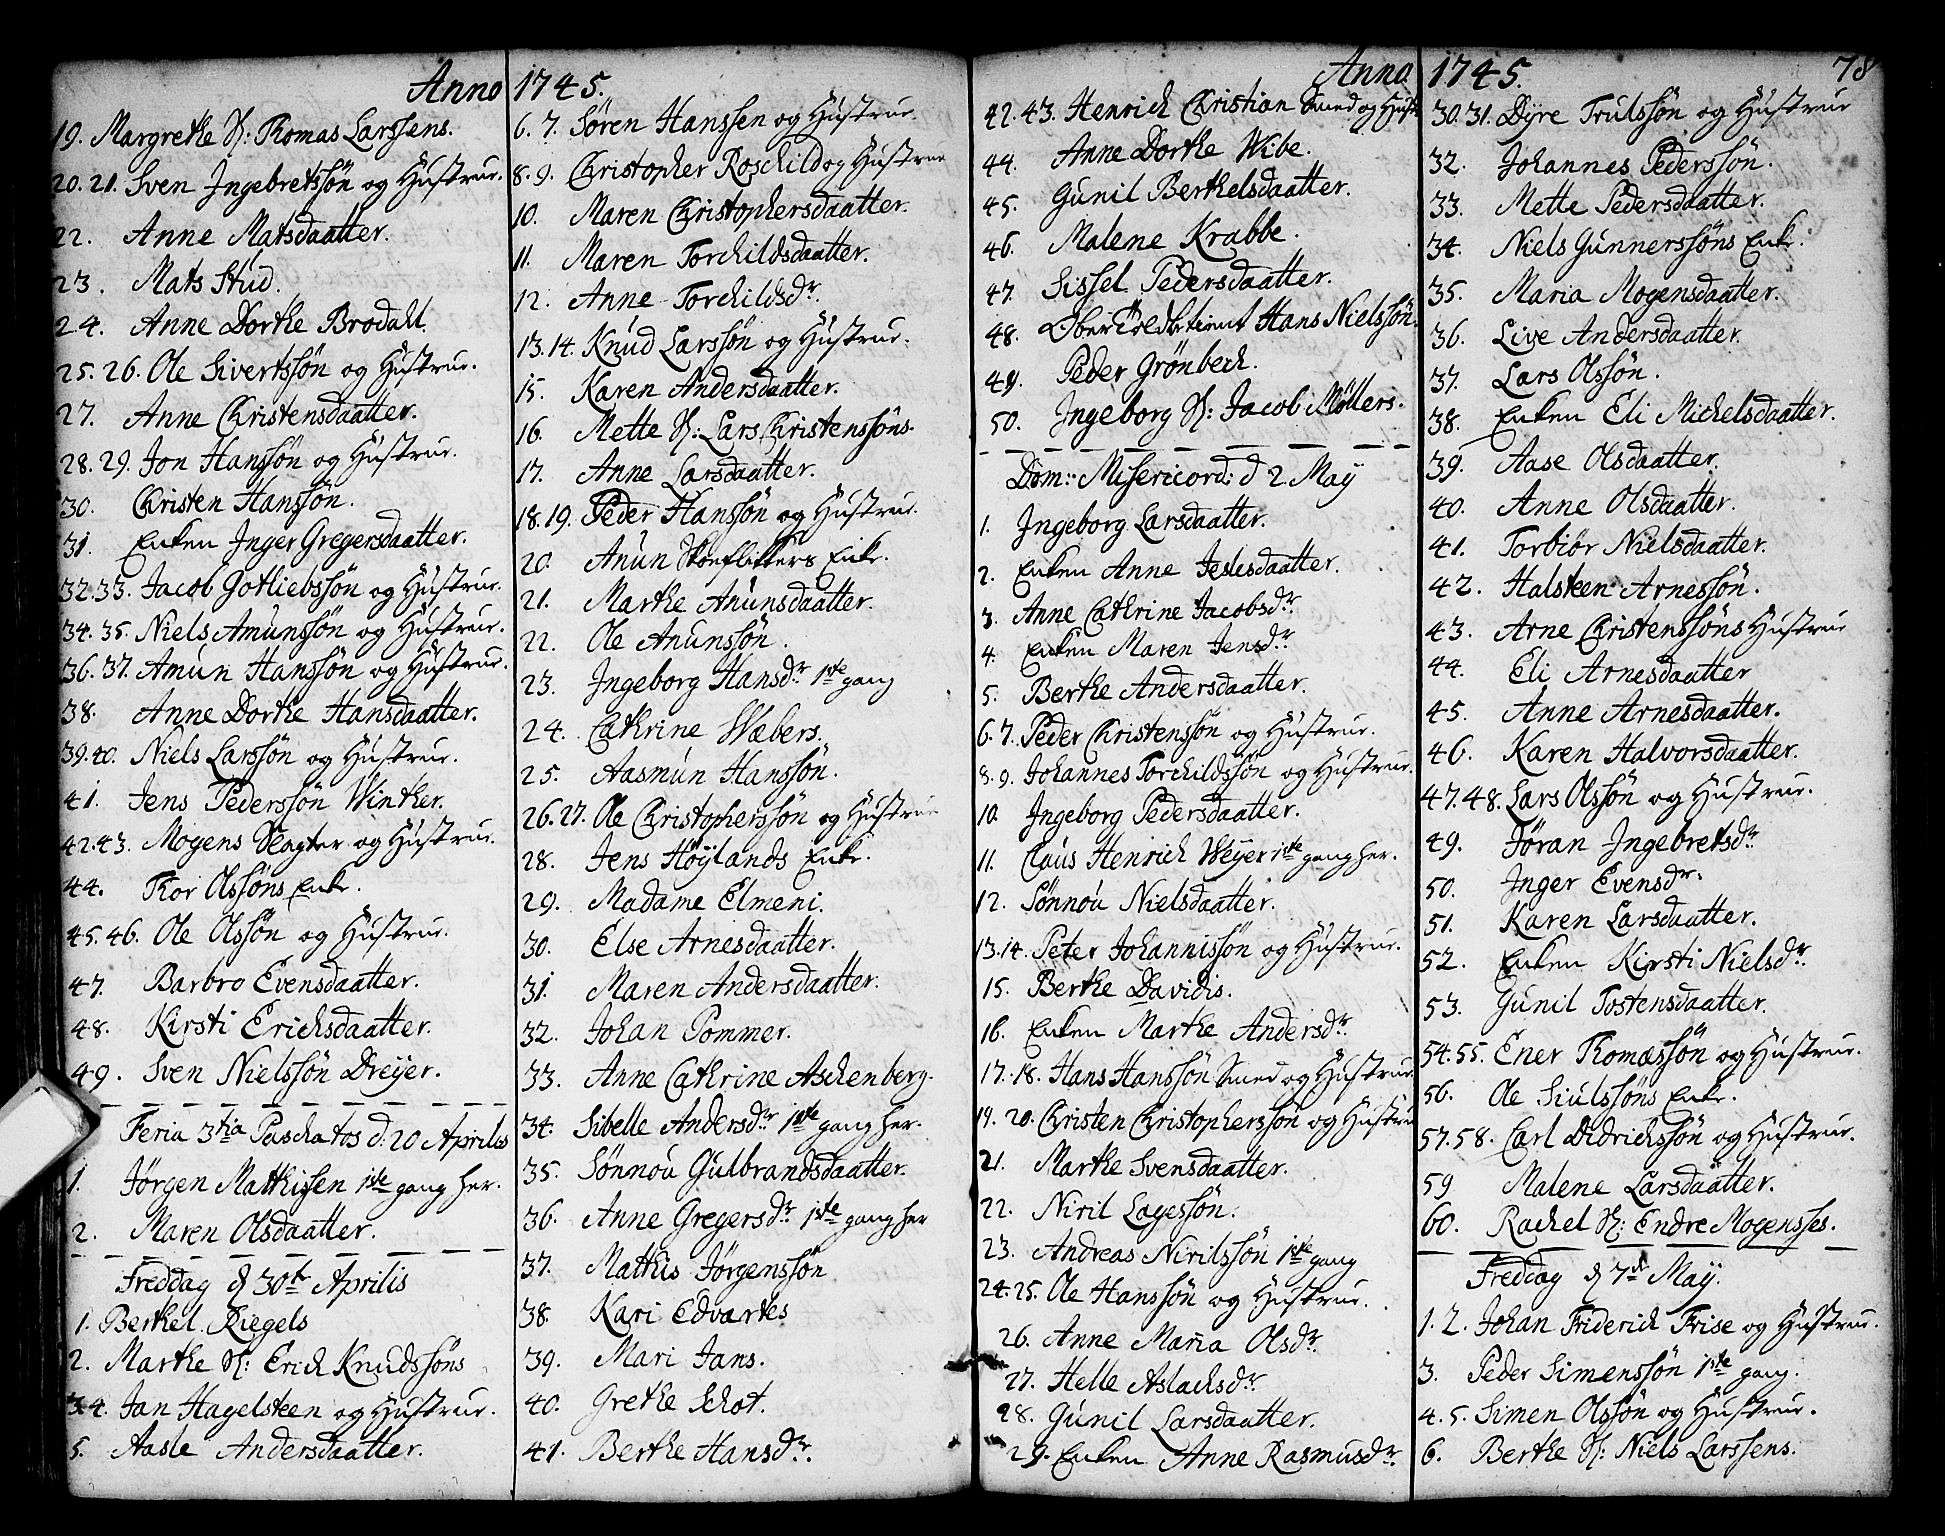 Anno 1745.
19. Margrethe H: Thomas Larssens.
20. 21. Sven Ingebretssøn og Hustrue.
22. Anne Matsdaatter.
23. Mats Stud.
24. Anne Dorthe Brodahl.
25. 26. Ole Sivertssøn og Hustrue.
27. Anne Christensdaatter.
28. 29. Jon Hanssøn og Hustrue.
30. Christen Hanssøn.
31. Enken Inger Gregersdaatter.
32. 33. Jacob Gotliebssøn og Hustrue.
34. 35. Niels Amunssøn og Hustrue.
36. 37. Amun Hanssøn og Hustrue.
38. Anne Dorthe Hansdaatter.
39. 40. Niels Larssøn og Hustrue.
41. Jens Pederssøn Winther.
42. 43. Mogens Slagter og Hustrue.
44. Thor Olssøns Enke.
45. 46. Ole Olssøn og Hustrue.
47. Barbro Evensdaatter.
48. Kirsti Erichsdaatter.
49. Sven Nielssøn Dreyer.
Feria 3tia Paschatos d. 20 Aprilis
1. Jørgen Mathissen 1ste gang her.
2. Maren Olsdaatter.
Freddag d 30te Aprilis
1. Berthel Riegels
2. Marthe H: Erich Knudssøns
3. 4. Jan Hagelsteen og Hustrue.
5. Aasle Andersdaatter.
6. 7. Søren Hanssen og Hustrue.
8. 9. Christopher Roschild og Hustrue
10. Maren Christophersdaatter.
11. Maren Torchildsdaatter.
12. Anne Torchildsdr.
13. 14. Knud Larssøn og Hustrue.
15. Karen Andersdaatter.
16. Mette H: Lars Christenssøns.
17. Anne Larsdaatter.
18. 19. Peder Hanssøn og Hustrue.
20. Anun Skoeflikkers Enke.
21. Marthe Anunsdaatter.
22. Ole Anunssøn.
23. Ingeborg Hansdr. 1ste gang
24. Cathrine Wæbers.
25. Aasmun Hanssøn.
26. 27. Ole Christopherssøn og Hustrue
28. Jens Høylands Enke.
29. Madame Elmeni.
30. Else Arnesdaatter.
31. Maren Andersdaatter.
32. Johan Pommer.
33. Anne Cathrine Aschenberg.
34. Sibelle Andersdr. 1ste gang her.
35. Sønnou Gulbrandsdaatter.
36. Anne Gregersdr. 1ste gang her
37. Mathis Jørgenssøn
38. Kari Edvartes
39. Mari Jans.
40. Grethe Schot.
41. Berthe Hansdr.
Anno 1745. 78
42. 43. Henrich Christian Smed og Hustr
44. Anne Dorthe Wibe.
45. Gunil Berthelsdaatter.
46. Malene Krabbe.
47. Sissel Pedersdaatter.
48. Hans Nielssøn.
49. Peder Grønbech.
50. Ingeborg H: Jacob Møllers.
Dom: Misericord: d 2 May
1. Ingeborg Larsdaatter.
2. Enken Anne Jeslesdaatter.
3. Anne Cathrine Jacobsdr.
4. Enken Maren Jensdr.
5. Berthe Andersdaatter.
6. 7. Peder Christenssøn og Hustrue.
8. 9. Johannes Torchildssøn og Hustrue.
10. Ingeborg Pedersdaatter.
11. Claus Henrich Weyer 1ste gang her.
12. Sønnou Nielsdaatter.
13. 14. Peter Johannissøn og Hustrue.
15. Berthe Davidis.
16. Enken Marthe Andersdr.
17. 18. Hans Hanssøn Smed og Hustrue
19. 20. Christen Christopherssøn og Hustrue
21. Marthe Svensdaatter.
22. Niril Lagessøn.
23. Andreas Nirilssøn 1ste gang
24. 25. Ole Hanssøn og Hustrue.
26. Anne Maria Olsdr.
27. Helle Aslachsdr.
28. Gunil Larsdaatter.
29. Enken Anne Rasmusdr.
30. 31. Dyre Trulssøn og Hustrue
32. Johannes Pederssøn.
33. Mette Pedersdaatter.
34. Niels Gunnerssøns Enke.
35. Maria Mogensdaatter.
36. Live Andersdaatter.
37. Lars Olssøn.
38. Enken Eli Michelsdaatter.
39. Aase Olsdaatter.
40. Anne Olsdaatter.
41. Torbiør Nielsdaatter.
42. Halsteen Arnessøn.
43. Arne Christenssøns Hustrue
44. Eli Arnesdaatter
45. Anne Arnesdaatter.
46. Karen Halvorsdaatter.
47. 48. Lars Olssøn og Hustrue.
49. Jøran Ingebretsdr.
50. Inger Evensdr.
51. Karen Larsdaatter.
52. Enken Kirsti Nielsdr.
53. Gunil Tostensdaatter.
54. 55. Ener Thomæssøn og Hustrue.
56. Ole Siulssøns Enke.
57. 58. Carl Didrichssøn og Hustrue.
59 Malene Larsdaatter.
60. Rachel H: Endre Mogensses.
Freddag d 7de May.
1. 2. Johan Friderich Frise og Hustrue.
3. Peder Simenssøn 1ste gang.
4. 5. Simen Olssøn og Hustrue.
6. Berthe H: Niels Larssens.